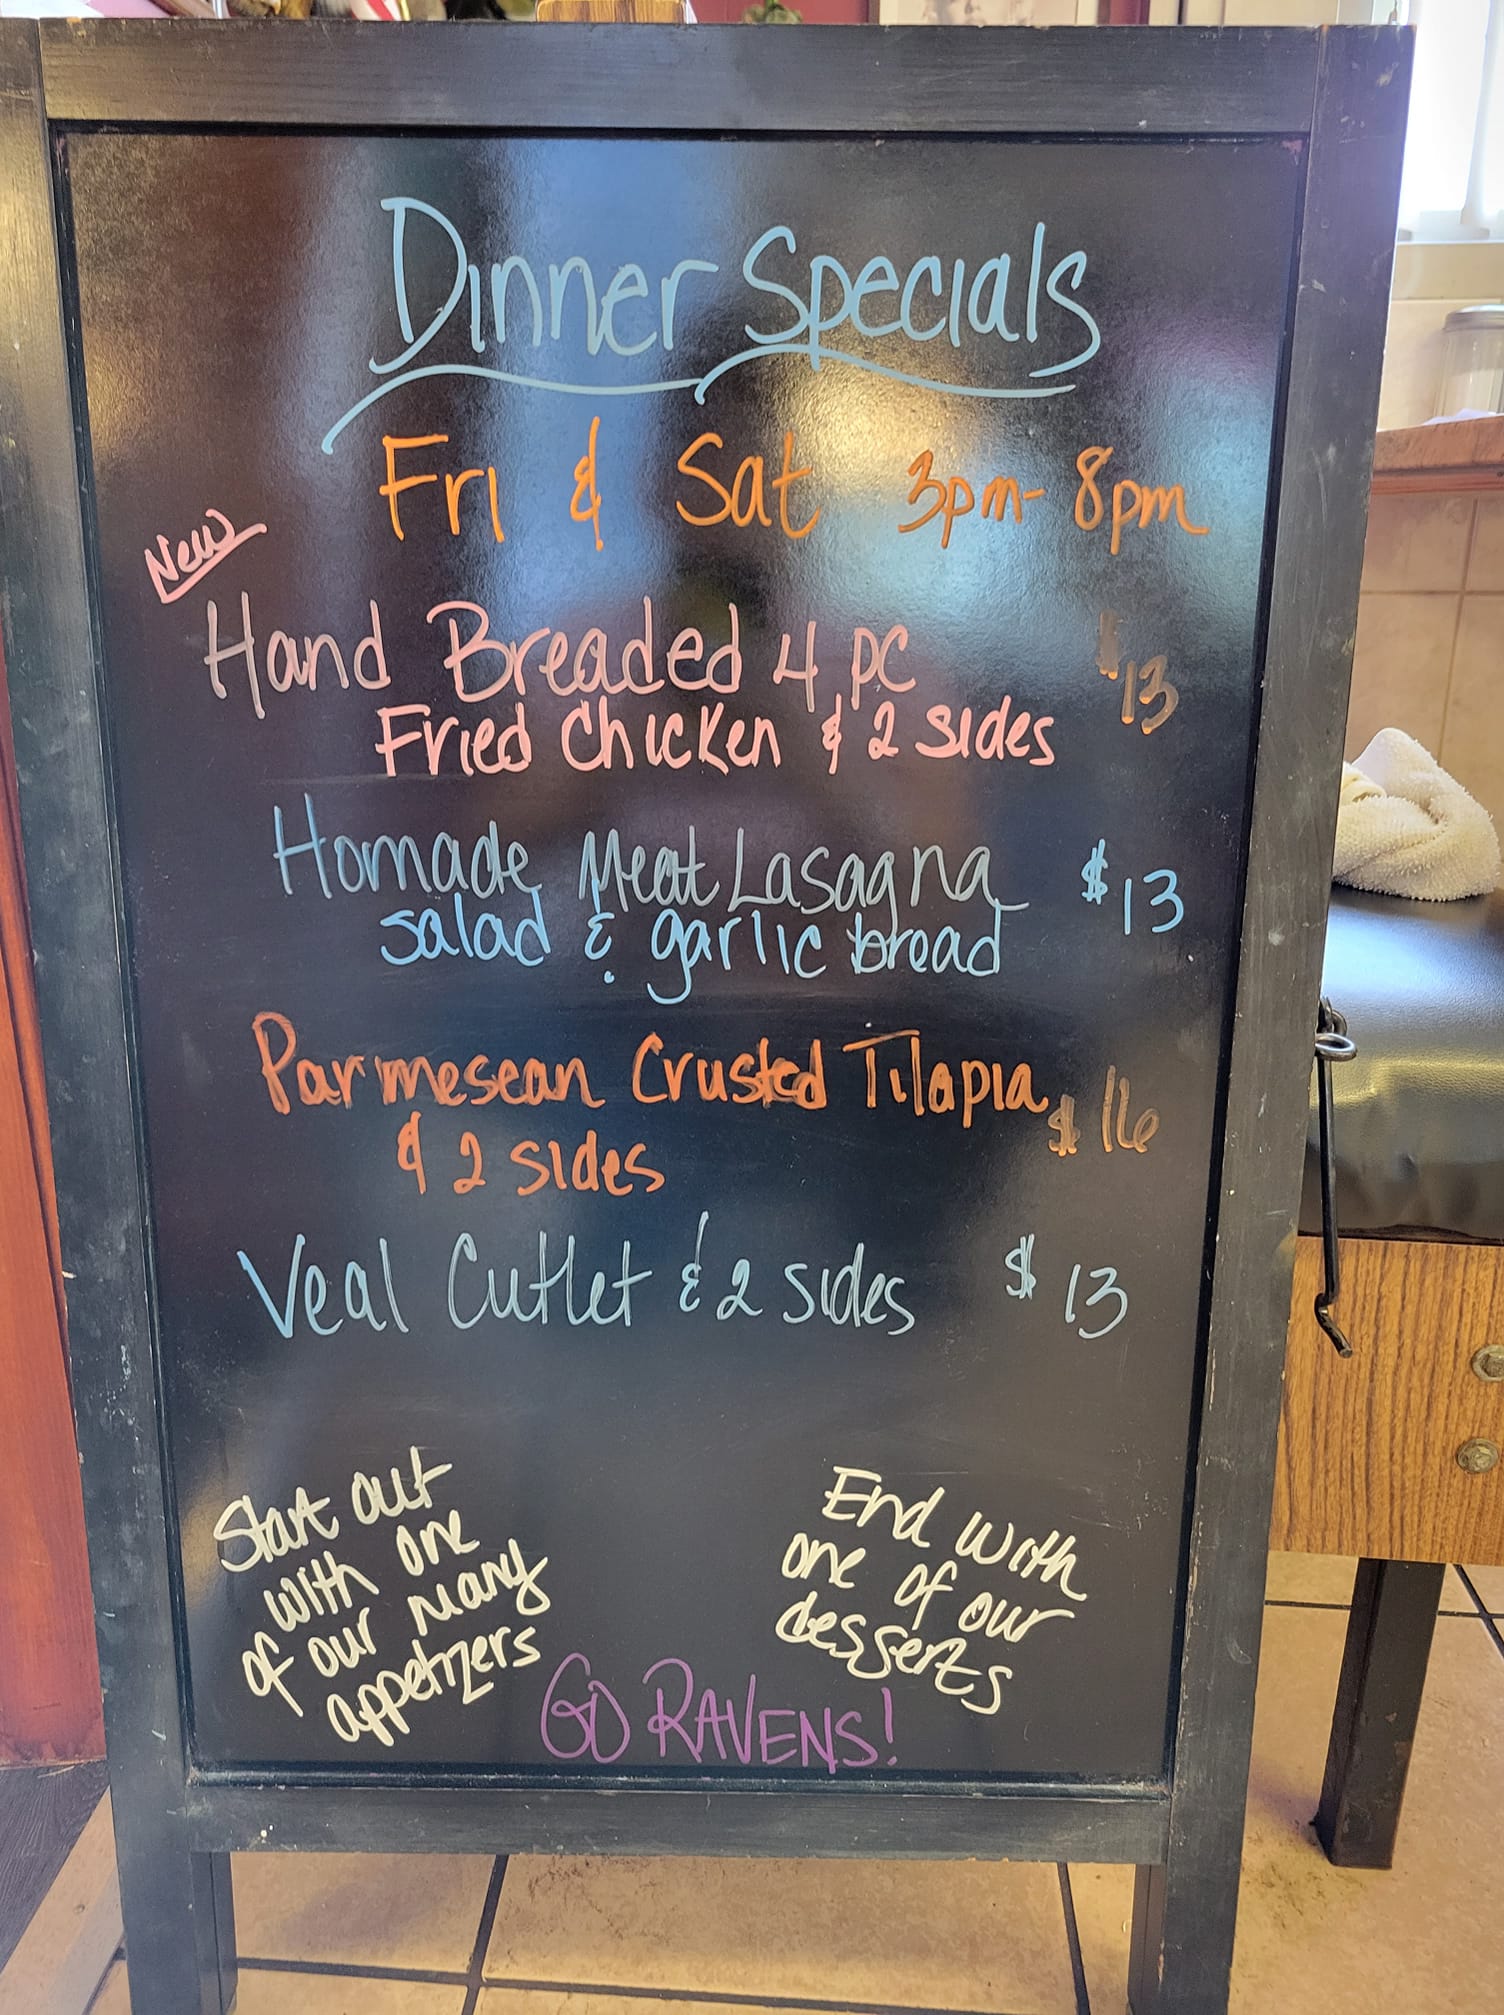 Dinner Specials
Fri & Sat 3pm-8pm
New
Hand Breaded 4 pc $13
Fried Chicken & 2 sides
Homade Meat Lasagna $13
salad & garlic bread
Parmesean Crusted Tilapia $16
& 2 sides
Veal Cutlet & 2 sides $13
Start out
with one
of our many
appetizers
End with
one of our
desserts
GO RAVENS!